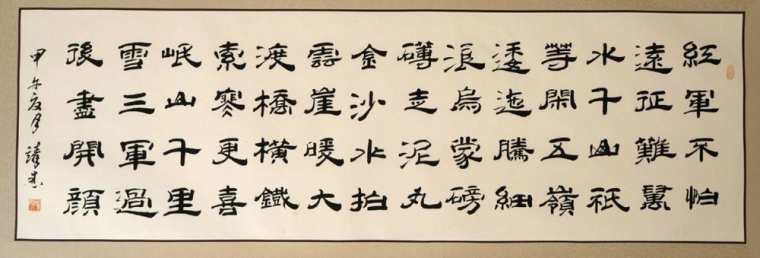 紅軍不怕
遠征難萬
水千山祇
等閑五嶺
逶迤騰細
浪烏蒙磅
礴走泥丸
金沙水拍
雲崖暖大
渡橋橫鐵
索寒更喜
岷山千里
雪三軍過
後盡開顔
甲午夏月